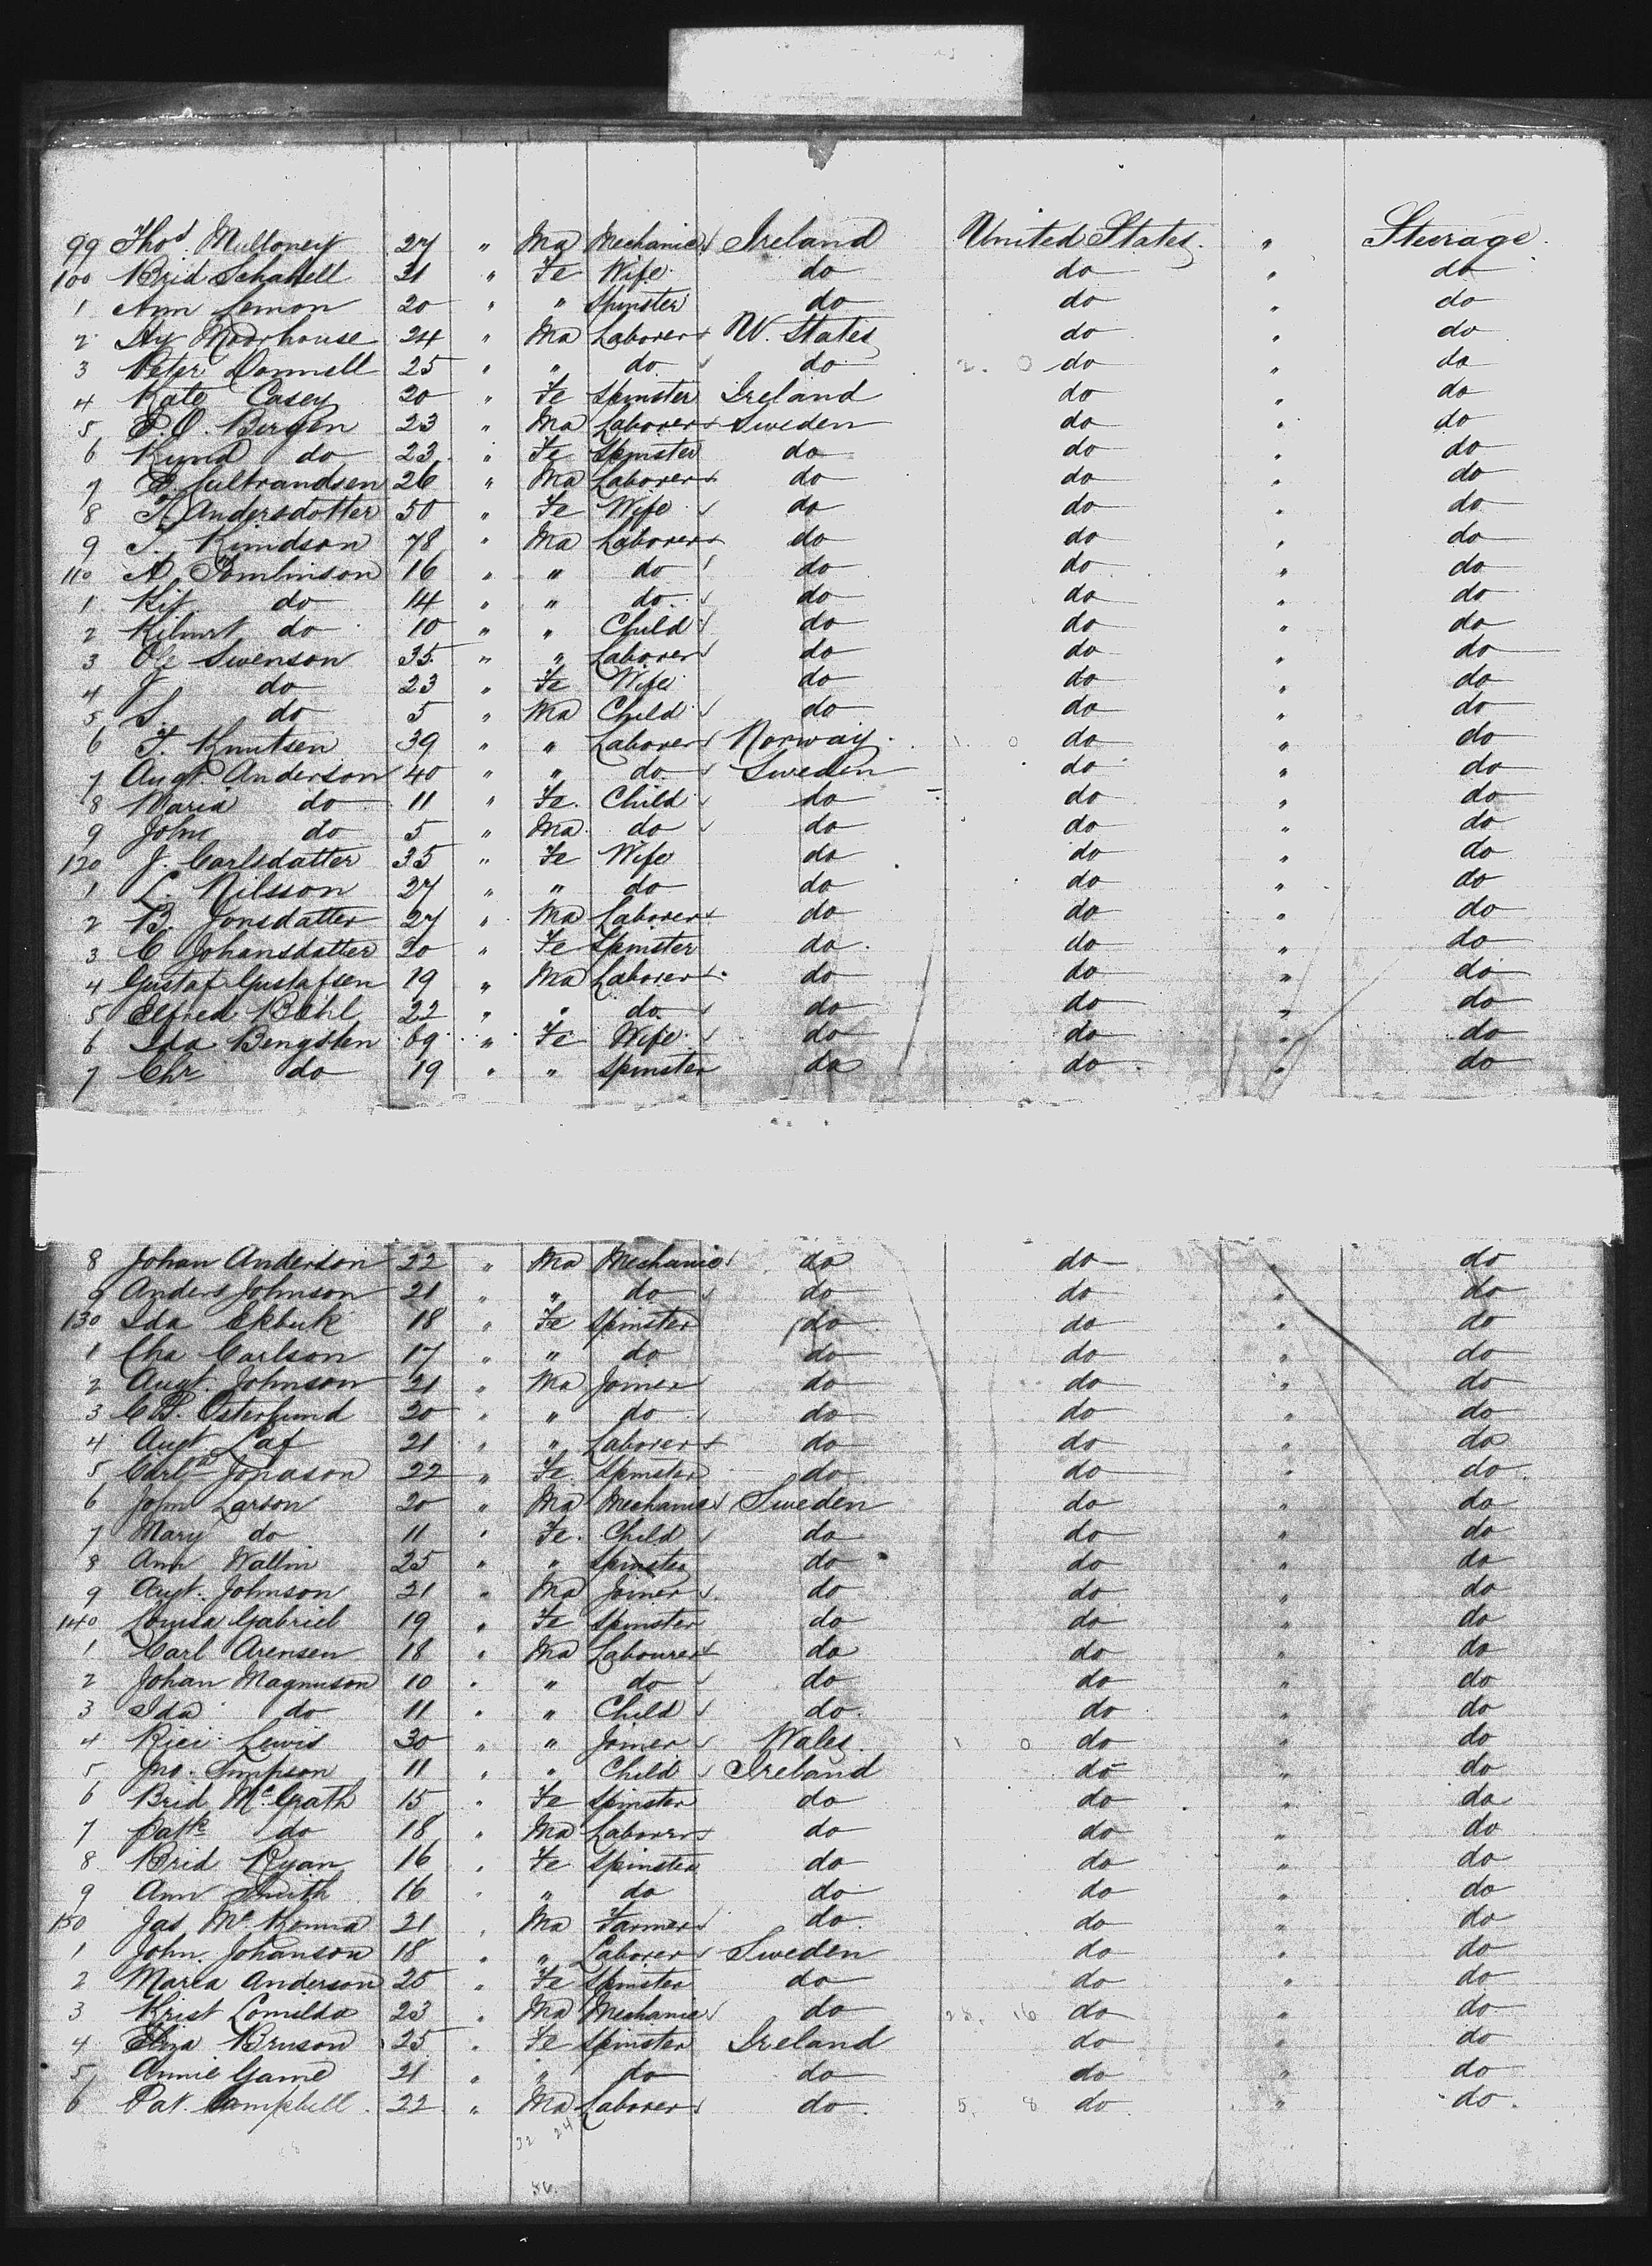 99 Thos. Mulloney 27 " Ma Mechanic Ireland United States. " Steerage.
100 Brid Schatell 21 " Fe Wife do do " do
1 Ann Lemon 20 " " Spinster do do " do
2 Hy Moorhouse 24 " Ma Laborer U. States do " do
3 Peter Donnell 25 " " do do 2. 0 do " do
4 Kate Casey 20 " Fe Spinster Ireland do " do
5 P.O. Bergen 23 " Ma Laborer Sweden do " do
6 do 23 " Fe Spinster do do " do
7 26 " Ma Laborer do do " do
8 Andersdotter 50 " Fe Wife do do " do
9 78 " Ma Laborer do do " do
110 A Tomlinson 16 " " do do do " do
1 Kit do 14 " " do do do " do
2 do 10 " " Child do do " do
3 Ole Swenson 35 " " Laborer do do " do
4 J do 23 " Fe Wife do do " do
5 S. do 5 " Ma Child do do " do
6 T. Knutsen 39 " " Laborer Norway. 1. 0 do " do
7 Augt. Anderson 40 " " do Sweden do " do
8 Maria do 11 " Fe. Child do do " do
9 John do 5 " Ma. do do do " do
120 J. Carlsdatter 35 " Fe Wife do do " do
1 L. Nilsson 27 " " do do do " do
2 B. Jonsdatter 27 " Ma Laborer do do " do
3 C Johansdatter 20 " Fe Spinster do do " do
4 Gustaf Gustafsen 19 " Ma Laborer do do " do
5 Elfred Bahl 22 " " do do do " do
6 Ida Bengsten 69 " Fe Wife do do " do
7 Chr do 19 " " Spinster do do " do
8 Johan Anderson 22 " Ma Mechanic do do " do
9 Anders Johnson 21 " " do do do " do
130 Ida Ekbuk 18 " Fe Spinster do do " do
1 Cha Carlson 17 " " do do do " do
2 Augt. Johnson 21 " Ma Joiner do do " do
3 Osterlund 20 " " do do do " do
4 Augt. Laf 21 " " Laborer do do " do
5 Carln Jonason 22 " Fe Spinster do do " do
6 John Larson 20 " Ma Mechanic Sweden do " do
7 Mary do 11 " Fe. Child do do " do
8 Ann Wallin 25 " " Spinster do do " do
9 Augt. Johnson 21 " Ma Joiner do do " do
140 Louisa Gabriel 19 " Fe Spinster do do " do
1 Carl Arensen 18 " Ma Labourer do do " do
2 Johan Magnuson 10 " " do do do " do
3 Ida do 11 " " Child do do " do
4 Lewis 30 " " Joiner Wales. 1 0 do " do
5 Jno. Simpson 11 " " Child Ireland do " do
6 Brid McGrath 15 " Fe Spinster do do " do
7 Patk do 18 " Ma Laborer do do " do
8 Brid Ryan 16 " Fe Spinster do do " do
9 Ann Smith 16 " " do do do " do
150 Jas McKenna 21 " Ma Farmer do do " do
1 John Johanson 18 " " Laborer Sweden do " do
2 Maria Anderson 20 " Fe Spinster do do " do
3 Krist 23 " Ma Mechanic do 28. 16 do " do
4 Eliza Bruson 25 " Fe Spinster Ireland do " do
5 Annie Game 21 " " do do do " do
6 Pat. Campbell 22 " Ma Laborer do 5. 8 do " do
32 24
56